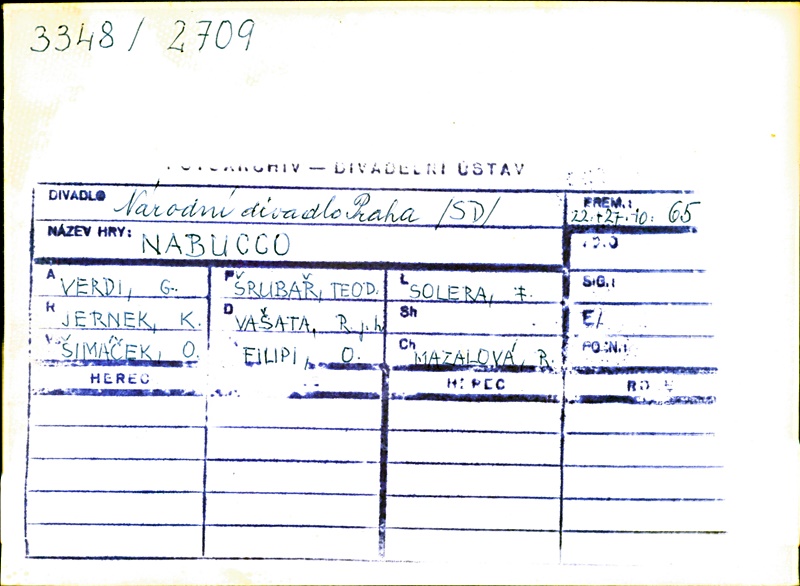 3348/ 2709
FOTOARCHIV — DIVADELNÍ ÚSTAV
DIVADLO Národní divadlo Praha /SD/
PREM.: 22.+27.10. 65
NÁZEV HRY: NABUCCO
A VERDI, G.
P ŠRUBAŘ, TEOD.
L SOLERA, T.
SIG.:
R JERNEK, K.
D VAŠATA, R. j.h.
Sh
E/
V ŠIMÁČEK, O.
FILIPI, O.
Ch MAZALOVÁ, R.
POZN.:
HEREC
HEREC